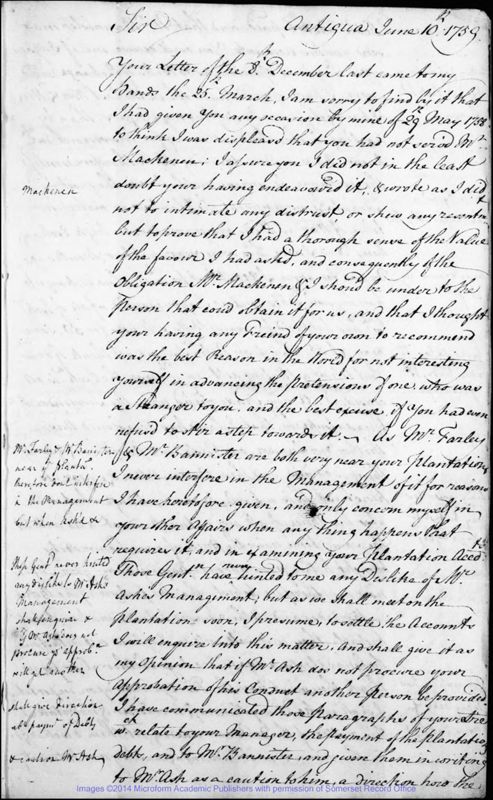 Sir Antigua June 10th 1759.
Your Letter of the 8th December last came to my
Hands the 25th March, I am sorry to find by it that
I had given You any occasion by mine of 29 May 1758
to think I was displeasd that you had not servd Mr
Mackenen; I assure you I did not in the least
doubt your having endeavoured it, & wrote as I did
not to intimate any distrust or shew any resentmt
but to prove that I had a thorough sense of the Value
of the favour I had asked, and consequently of the
Obligation Mr Mackenen & I shoud be under to the
Person that coud obtain it for us, and that I thought
your having any Freind of your own to recommend
was the best Reason in the World for not interesting
yourself in advancing the pretensions of one, who was
a Stranger to you, and the best excuse, if You had even
refused to stir a step towards it. As Mr Farley
& Mr Bannister are both very near your Plantation
I never interfere in the Management of it for reasons
I have heretofore given, and only concern myself in
your other Affairs when any thing happens that
requires it, and in examining your Plantation Acctts
Those Gentn have never hinted to me any Dislike of Mr
Ashes Management; but as we shall meet on the
plantation soon, I presume, to settle the Accounts
I will enquire into this matter, and shall give it as
my Opinion that if Mr Ash does not procure your
Approbation of his Conduct another Person be provided
I have communicated those Paragraphs of your Lre
wch relate to your Manager, the payment of the plantation
debts, and to Mr Bannister, and given them in writing
to Mr Ash as a caution to him, a direction how the
Mackenen
Mr Farley & Mr Banister
near ye Plantn
therefore don't interfere
in the Management
but when Askd &
These Gentn never hinted
any Dislike to Mr Ashs
Management
shall enquire &
if Mr Ash does not
procure yr approbn
will get another
shall give direction
abt paymt of Debts
& caution Mr Ash
Images ©2014 Microform Academic Publishers with permission of Somerset Record Office